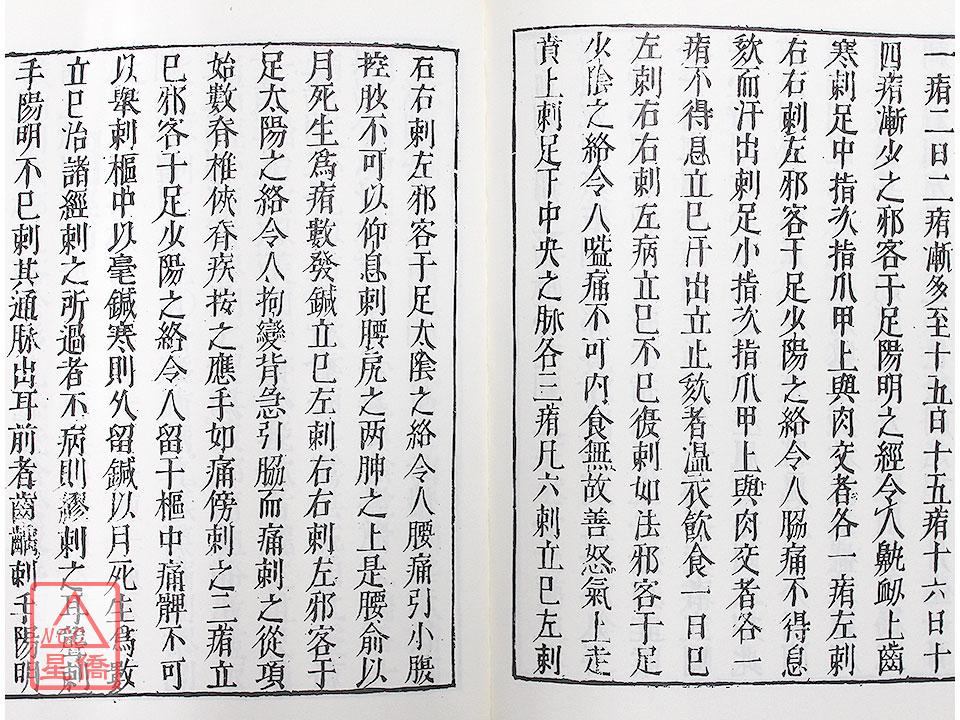 一痏二日二痏漸多至十五日十五痏十六日十
四痏漸少之邪客于足陽明之經令人鼽衂上齒
寒刺足中指次指爪甲上與肉交者各一痏左刺
右右刺左邪客于足少陽之絡令人脇痛不得息
欬而汗出刺足小指次指爪甲上與肉交者各一
痏不得息立已汗出立止欬者温衣飲食一日已
左刺右右刺左病立已不已復刺如法邪客于足
少陰之絡令人嗌痛不可內食無故善怒氣上走
賁上刺足下中央之脉各三痏凡六刺立已左刺
右右刺左邪客于足太陰之絡令人腰痛引小腹
控䏚不可以仰息刺腰尻之两胂之上是腰俞以
月死生爲痏數發鍼立已左刺右右刺左邪客于
足太陽之絡令人拘攣背急引脇而痛刺之從項
始數脊椎俠脊疾按之應手如痛傍刺之三痏立
已邪客于足少陽之絡令人留于樞中痛髀不可
以舉刺樞中以毫鍼寒則久留鍼以月死生爲數
立已治諸經刺之所過者不病則繆刺之耳聾刺
手陽明不已刺其通脉出耳前者齒齲刺手陽明
NCC
星僑